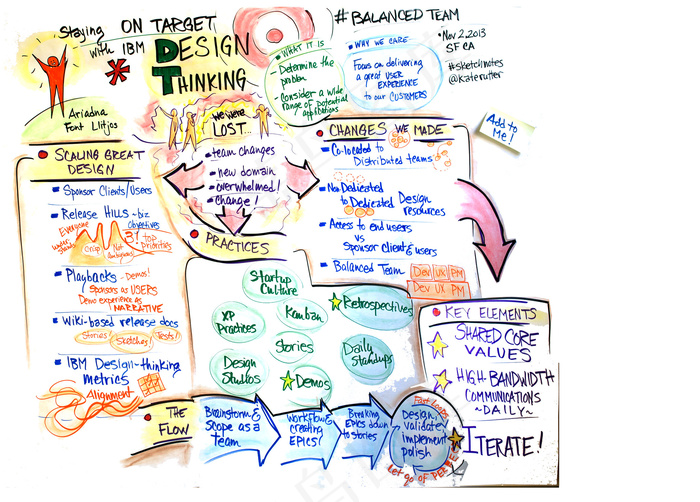 Staying ON TARGET
with IBM DESIGN
THINKING
#BALANCED TEAM
• Nov 2, 2013
SF CA
#sketchnotes
@katerutter
Ariadna
Font Llitjos
• WHAT IT IS
- Determine the
problem
- Consider a wide
range of potential
applications
• WHY WE CARE
Focus on delivering
a great USER
EXPERIENCE
to our CUSTOMERS
Add to
Me!
We were
LOST...
• team changes
• new domain
• overwhelmed!
• change!
SCALING GREAT
DESIGN
Sponsor Clients/Users
Release HILLS ~ biz
objectives
Everyone
understands
Crisp
Not
ambiguous
3! top
priorities
Playbacks - Demos!
Sponsors as USERS
Demo experience as
NARRATIVE
Wiki-based release docs
Stories!
Sketches!
Tests!
IBM Design-thinking
metrics
Alignment
CHANGES WE MADE
Co-located to
Distributed teams
No Dedicated
to Dedicated Design
resources
Access to end users
vs
Sponsor client & users
Balanced Team
Dev UX PM
Dev UX PM
PRACTICES
Startup
Culture
XP
Practices
Kanban
Retrospectives
Stories
Daily
Standups
Design
Studios
Demos
KEY ELEMENTS
SHARED CORE
VALUES
HIGH-BANDWIDTH
COMMUNICATIONS
~DAILY~
ITERATE!
THE
FLOW
Brainstorm &
Scope as a
team
Workflow &
creating
EPICS!
Breaking
EPICS down
to stories
Design
validate
implement
polish
Let go of PERFECT